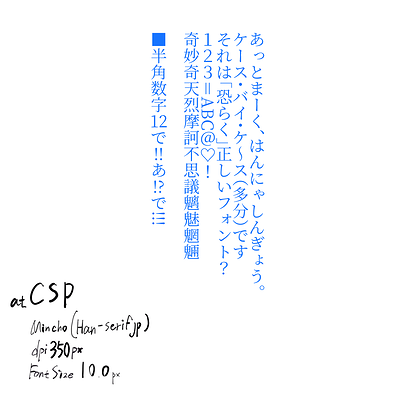 あっとまーく、はんにゃしんぎょう。
ケース・バイ・ケ〜ス(多分)です
それは「恐らく」正しいフォント？
１２３＝ABC＠♡！
奇妙奇天烈摩訶不思議魑魅魍魎
■半角数字12で!!あ!?で!!!
at CSP
Mincho (Han-serif jp)
dpi 350px
Font Size 10.0px